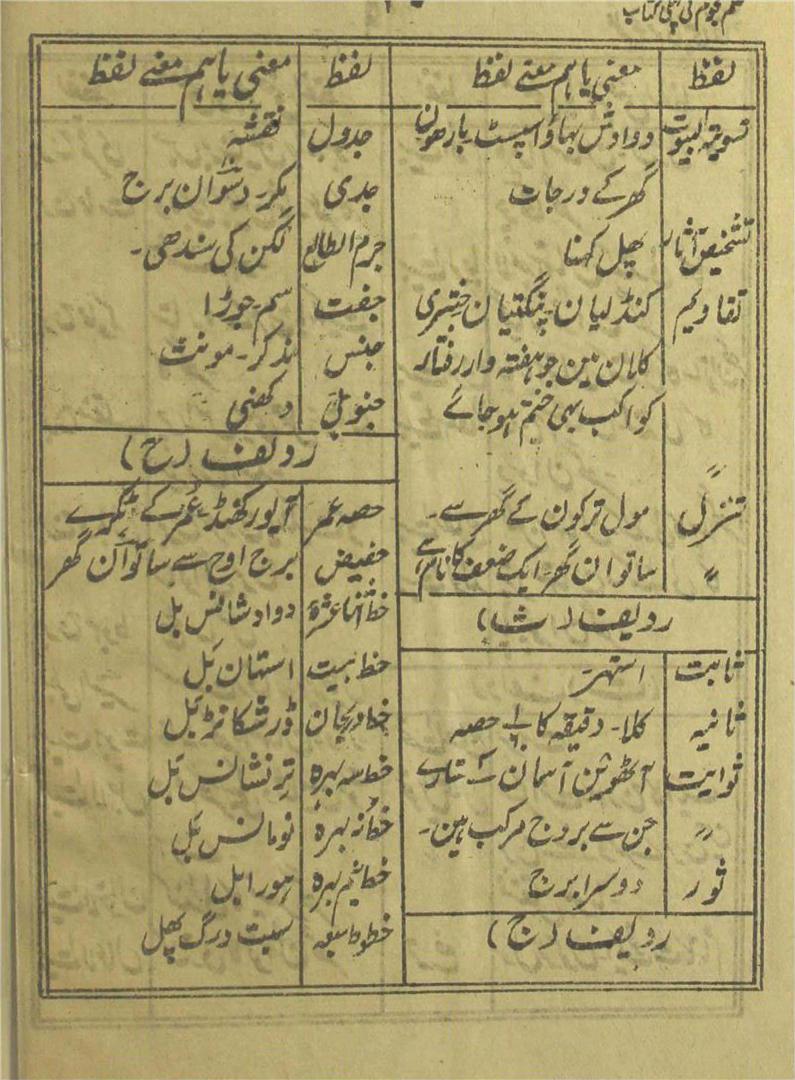 علم نجوم کی پہلی کتاب
لفظ معنی یا ہم معنے لفظ
تسویۃ البیوت دوادش بھاؤ اسپشٹ بارھون
گھر کے درجات
تشخیص آثار پھل کہنا
تقاویم کنڈلیان۔ پنگتیان جنتری
کلان مین جو ہفتہ وار رفتار
کواکب بھی ختم ہو جائے
تنزل مول ترکون کے گھر سے۔
〃 ساتوان گھر ایک ضعف کا نام ہے
ردیف (ث)
ثابت استھر
ثانیہ کلا۔ دقیقہ کا حصہ
ثوابت آٹھوین آسمان کے تارے
〃 جن سے بروج مرکب ہین۔
ثور دوسرا برج
ردیف (ج)
لفظ معنی یا ہم معنے لفظ
جدول نقشہ
جدی مکر۔ دسوان برج
جرم الطالع لگن کی سندھی۔
جفت سم۔ جوڑا
جنس مذکر۔ مونث
جنوبی دکھنی
ردیف (ح)
حصہ عمر آیور کھنڈ۔ عمر کے ٹکڑے
حضیض برج اوج سے ساتوان گھر
حظ اثنا عشرہ دوادشانس بل
حظ بیت استھان بل
حظ دریجان ڈرشکانڑ بل
حظ سہ بہرہ ترنشانس بل
حظ نہ بہرہ نومانس بل
حظ نیم بہرہ ہورا بل
خطوط سبعہ سپت ورگ پھل